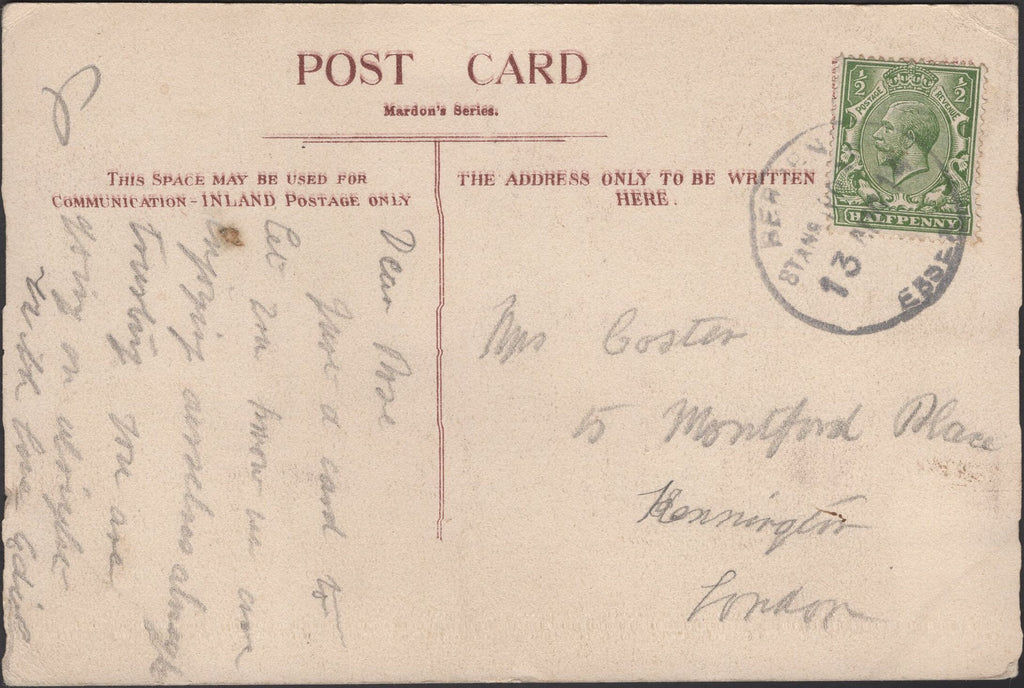 POST CARD
Mardon's Series.
THIS SPACE MAY BE USED FOR
COMMUNICATION - INLAND POSTAGE ONLY
THE ADDRESS ONLY TO BE WRITTEN
HERE.
½ ½
POSTAGE REVENUE
HALFPENNY
13
ESSEX
Dear Rose
Just a card to
let you know we are
enjoying ourselves
trusting you are
going on alright
with love Edie
Mrs Coster
15 Montford Place
Kennington
London